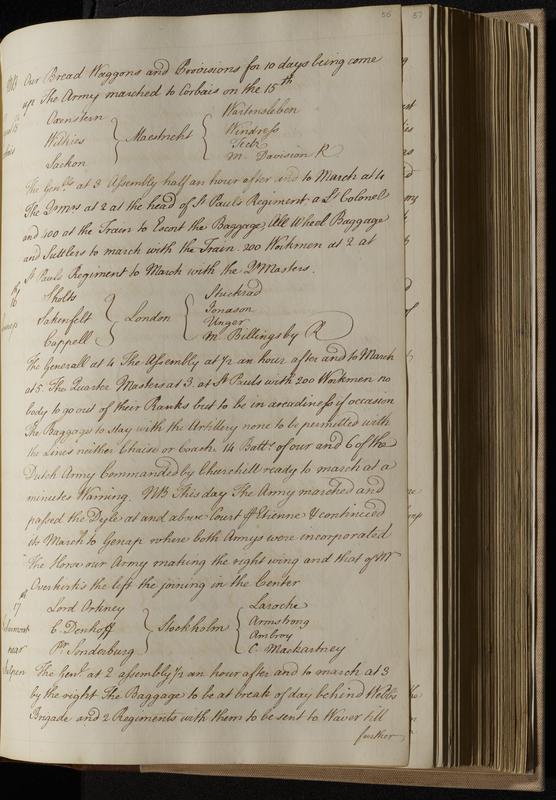 56
57
Our Bread Waggons and Provisions for 10 days being come
up The Army marched to Corbais on the 15th
Oxenstern
Wilkies
Sacken
Maestricht
Wartensleben
Windress
M. Davision R
The Genlls at 3 Assembly half an hour after and to March at 4
The Qrmrs at 2 at the head of St Pauls Regiment a Lt Colonel
and 400 at the Train to Escort the Baggage, All Wheel Baggage
and Suttlers to march with the Train. 200 Workmen at 2 at
St Pauls Regiment to March with the Qr Masters.
16
Sholts
Sakenfelt
Cappell
London
Stuckrad
Jonason
Unger
M. Billingsby R
The Generall at 4 The Assembly at 1/2 an hour after and to March
at 5. The Quarter Masters at 3. at St Pauls with 200 Workmen no
body to go out of their Ranks but to be in areadiness if occasion
The Baggage to stay with the Artillery none to be permitted with
the Lines neither Chaise or Coach. 14 Batts of our and 6 of the
Dutch Army Commanded by Churchill ready to march at a
minutes Warning. NB This day The Army marched and
passed the Dyle at and above Court St Etienne & continued
its March to Genap where both Armys were incorporated
The Horse our Army making the right wing and that of Mr
Overkirk's the left the joining in the Center
17
near
Lord Orkney
C. Denhoff
Pr Sonderburg
Stockholm
Laroche
Armstrong
Ambroy
C. Mackartney
The Genl at 2 assembly 1/2 an hour after and to march at 3
by the right The Baggage to be at break of day behind Webbs
Brigade and 2 Regiments with them to be sent to Waver till
further